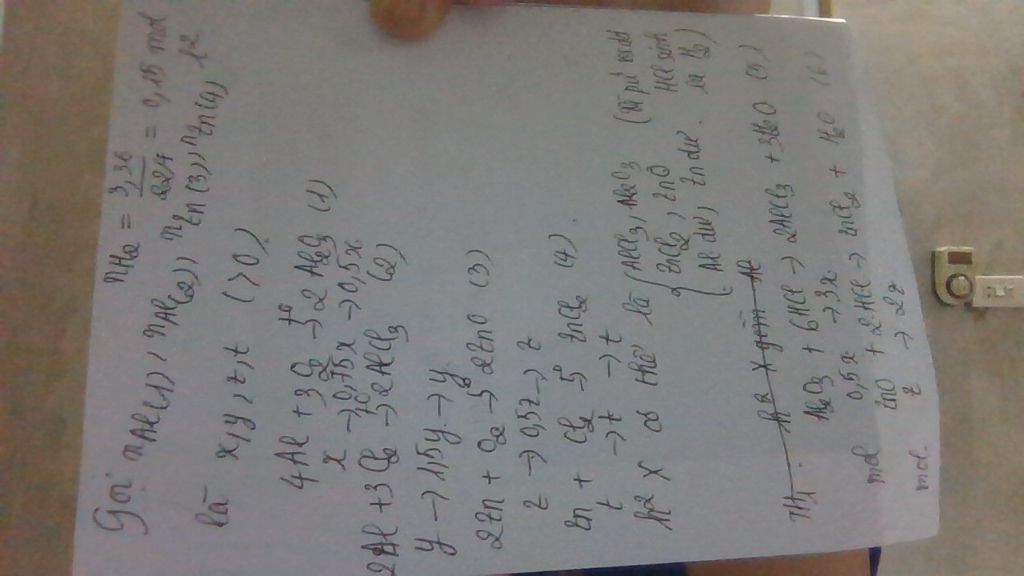 nH2 = 3,36/22,4 = 0,15 mol
Gọi nAl(1), nAl(2), nZn(3), nZn(4) l²
là x, y, z, t (>0)
4Al + 3O2 -t°-> 2Al2O3 (1)
x → 0,75x → 0,5x
2Al + 3Cl2 -t°-> 2AlCl3 (2)
y → 1,5y → y
2Zn + O2 -t°-> 2ZnO (3)
z → 0,5z → z
Zn + Cl2 -t°-> ZnCl2 (4)
t → t → t
h² X có thể là { AlCl3, Al2O3 (Vì pứ với
ZnCl2, ZnO HCl sinh
Al dư, Zn dư. ra H2)
TH1. h² X gồm Al
Al2O3 + 6HCl → 2AlCl3 + 3H2O (5)
mol 0,5x → 3x
ZnO + 2HCl → ZnCl2 + H2O (6)
mol z → 2z